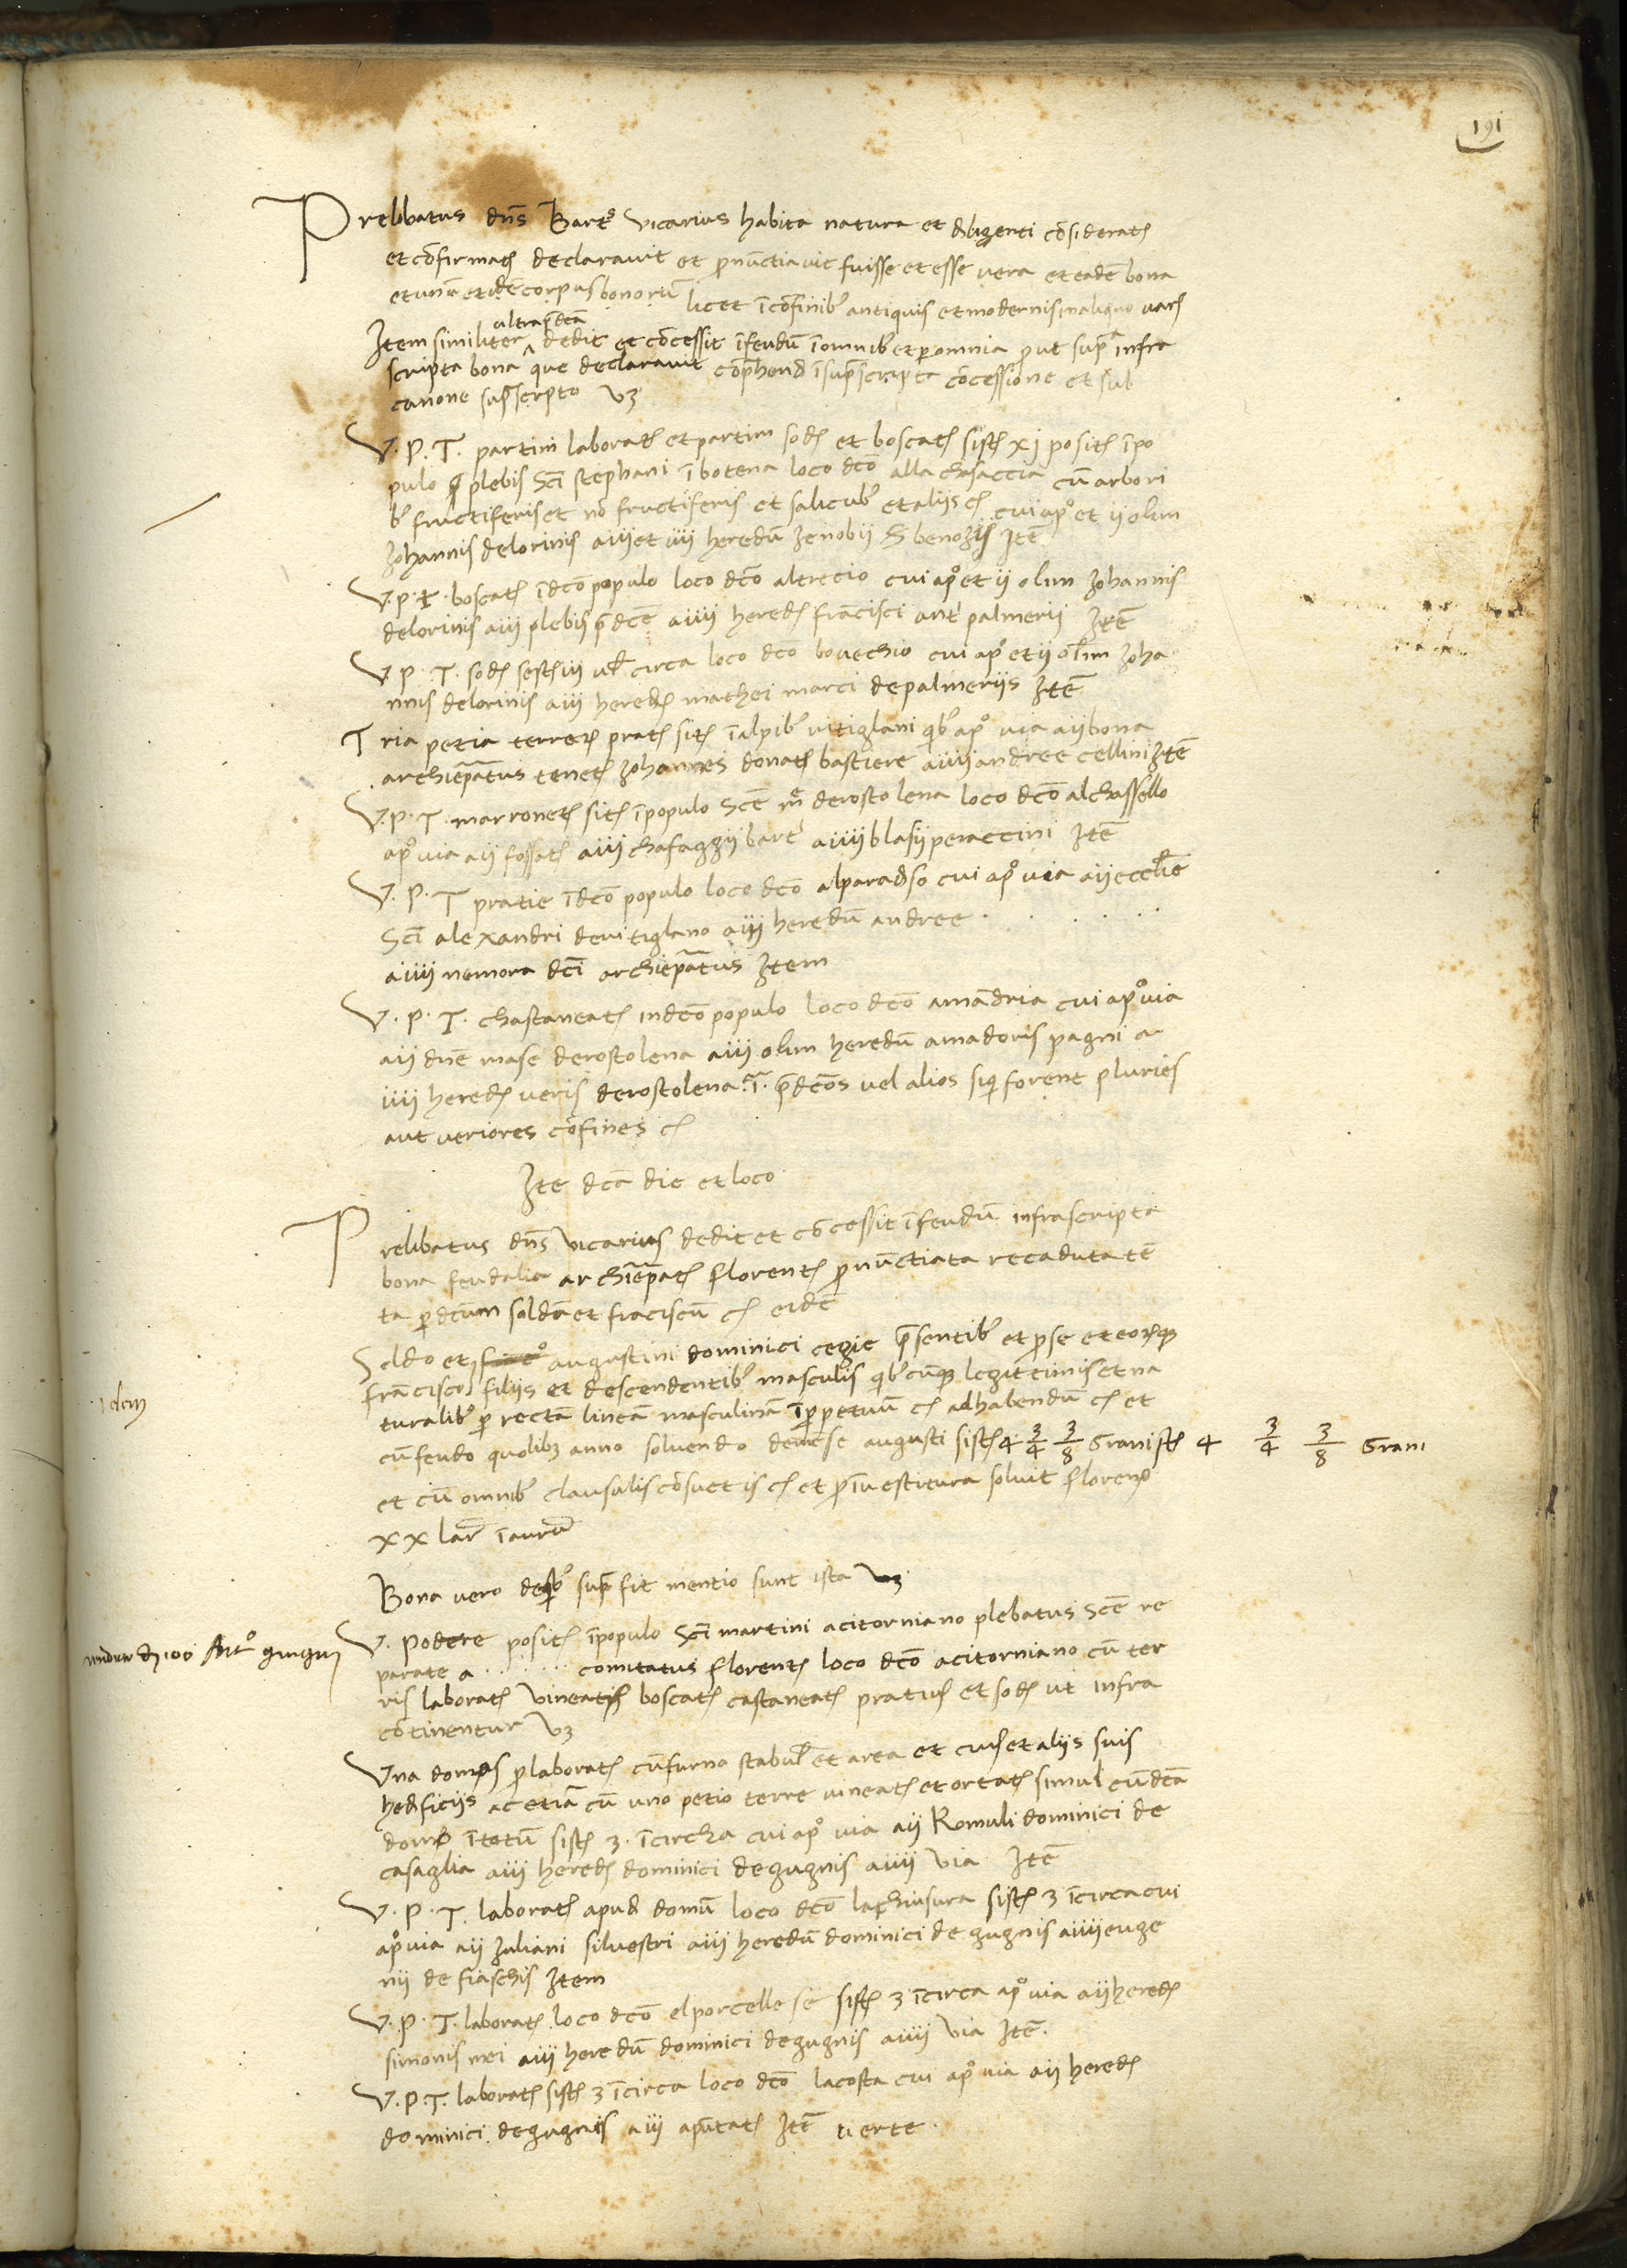 191
Prelibatus dns Barto vicarius habita natura et diligenti considerat
et confirmat declaravit et pronuctiavit fuisse et esse vera et eade bona
et unu et ide corpus bonoru licet i cofinib antiquis et modernis in aliquo var
ultra pdca
Item similiter ^ dedit et cocessit i feudu i omnib et p omnia put supra infra
scripta bona que declaravit coprhend i suprascripta cocessione et sub
canone suprascripto vz
V. P. T. partim laborat et partim sod et boscat sist xj posit i po
pulo plebis sci stephani i botena loco dco alla chasaccia cu arbori
b fructiferis et no fructiferis et salicib et aliis c cui apo et ij olim
Johannis de lorinis a iij et iiij heredu zenobii S benozii Ite
V. p. t. boscat i dco populo loco dco altrecio cui apo et ij olim Johannis
de lorinis a iij plebis pdce a iiij hered francisci ant palmerii Ite
V P. T. sod sest iij vl circa loco dco bovechio cui apo et ij olim Joha
nnis de lorinis a iij hered mathei marci de palmeriis Ite
Tria petia terrer prat sit i alpib vitiglani qib apo via a ij bona
archiepatus tenet Johannes donat bastiere a iiij andree cellini Ite
V. P. T. marronet sit i populo Sce m de rostolena loco dco al chassello
apo via a ij fossat a iij chafaggii bart a iiij blasii peraccini Ite
V. P. T pratie i dco populo loco dco alparadiso cui apo via a ij ecclie
Sci alexandri de vitiglano a iij heredu andree . . . . .
a iiij nemora dci archiepatus Item
V. P. T. chastaneat in dco populo loco dco amandria cui apo via
a ij dne mase de rostolena a iij olim heredu amadoris pagni a
iiij hered veris de rostolena i pdcos vel alios siqi forent pluries
aut veriores cofines c
Ite dca die et loco
Prelibatus dns vicarius dedit et cocessit i feudu infrascripta
bona feudalia archiepat florent pronuctiata recaduta te
ta p dcum solda et fraciscu c eide
Soldo et augustini dominici cegie psentib et p se et eorq
francisco filiis et descendentib masculis qibcuq legiteimis et na
idem
turalib p recta linea masculina i ppetuu c ad habendu c et
cu feudo quolib anno solvendo de mense augusti sist 4 3/4 3/8 Grani st 4 3/4 3/8 Grani
et cu omnib clausulis cosuetis c et p ivestitura solvit floreno
xx lar i auru
Bona vero de qib supra fit mentio sunt ista vz
V. Podere posit i populo Sci martini a citorniano plebatus Sce re
parate a . . . . . . comitatus florent loco dco acitorniano cu ter
ris laborat vineatis boscat castaneat prativis et sod ut infra
continentur vz
Una domus p laborat cu furno stabul et area et cuiset aliis suis
hedificiis ac etia cu uno petio terre vineat et ortat simul cu dca
domo i totu sist 3. i circha cui apo via a ij Romuli dominici de
casaglia a iij hered dominici de gugnis a iiij via Ite
V. P. T. laborat apud domu loco dco lachiusura sist 3 i circa cui
apo via a ij Juliani silvestri a iij heredu dominici de gugnis a iiij euge
nii de fiaschis Item
V. P. T. laborat loco dco el porcellese sist 3 i circa apo via a ij hered
simonis mei a iij heredu dominici de gugnis a iiij via Ite.
V. P. T. laborat sist 3 i circa loco dco lacosta cui apo via a ij hered
dominici de gugnis a iij aputat Ite verte.